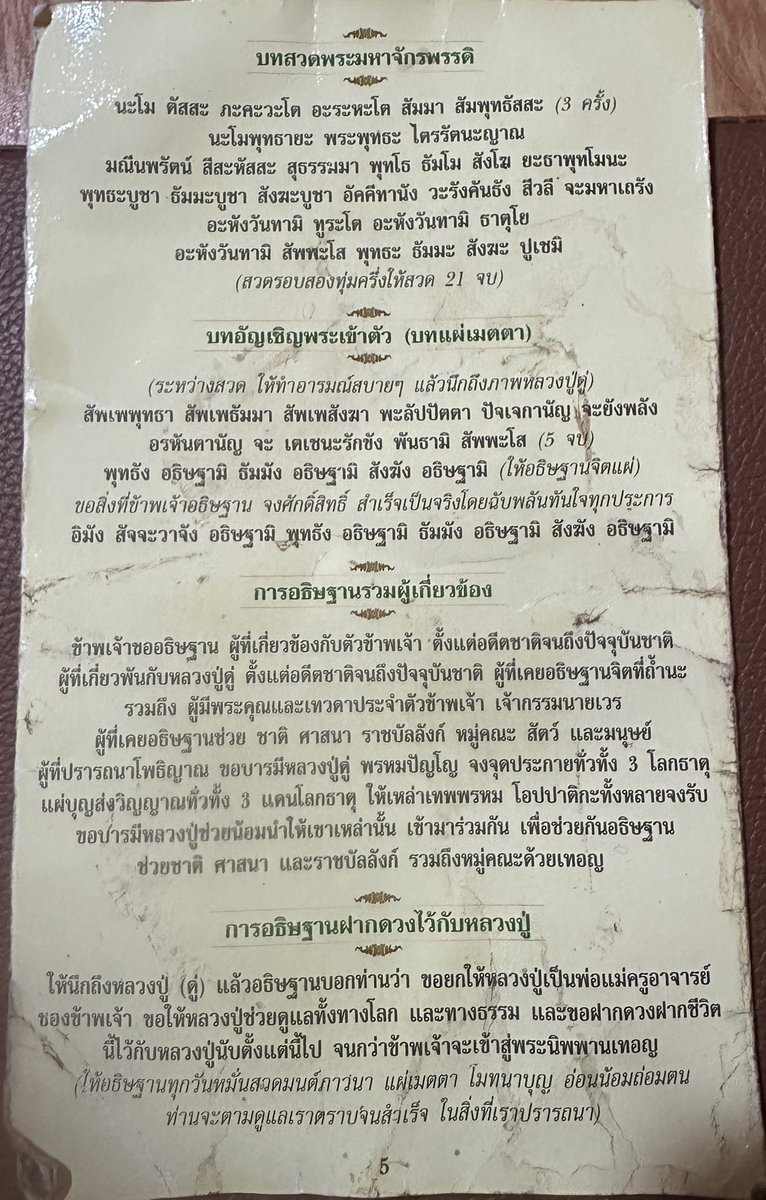 บทสวดพระมหาจักรพรรดิ
นะโม ตัสสะ ภะคะวะโต อะระหะโต สัมมา สัมพุทธัสสะ (3 ครั้ง)
นะโมพุทธายะ พระพุทธะ ไตรรัตนะญาณ
มณีนพรัตน์ สีสะหัสสะ สุธรรมมา พุทโธ ธัมโม สังโฆ ยะธาพุทโมนะ
พุทธะบูชา ธัมมะบูชา สังฆะบูชา อัคคีทานัง วะรังคันธัง สีวลี จะมหาเถรัง
อะหังวันทามิ ทูระโต อะหังวันทามิ ธาตุโย
อะหังวันทามิ สัพพะโส พุทธะ ธัมมะ สังฆะ ปูเชมิ
(สวดรอบสองทุ่มครึ่งให้สวด 21 จบ)
บทอัญเชิญพระเข้าตัว (บทแผ่เมตตา)
(ระหว่างสวด ให้ทำอารมณ์สบายๆ แล้วนึกถึงภาพหลวงปู่ดู่)
สัพเพพุทธา สัพเพธัมมา สัพเพสังฆา พะลัปปัตตา ปัจเจกานัญ จะยังพลัง
อรหันตานัญ จะ เตเชนะรักขัง พันธามิ สัพพะโส (5 จบ)
พุทธัง อธิษฐามิ ธัมมัง อธิษฐามิ สังฆัง อธิษฐามิ (ให้อธิษฐานจิตแผ่)
ขอสิ่งที่ข้าพเจ้าอธิษฐาน จงศักดิ์สิทธิ์ สำเร็จเป็นจริงโดยฉับพลันทันใจทุกประการ
อิมัง สัจจะวาจัง อธิษฐามิ พุทธัง อธิษฐามิ ธัมมัง อธิษฐามิ สังฆัง อธิษฐามิ
การอธิษฐานรวมผู้เกี่ยวข้อง
ข้าพเจ้าขออธิษฐาน ผู้ที่เกี่ยวข้องกับตัวข้าพเจ้า ตั้งแต่อดีตชาติจนถึงปัจจุบันชาติ
ผู้ที่เกี่ยวพันกับหลวงปู่ดู่ ตั้งแต่อดีตชาติจนถึงปัจจุบันชาติ ผู้ที่เคยอธิษฐานจิตที่ถ้ำนะ
รวมถึง ผู้มีพระคุณและเทวดาประจำตัวข้าพเจ้า เจ้ากรรมนายเวร
ผู้ที่เคยอธิษฐานช่วย ชาติ ศาสนา ราชบัลลังก์ หมู่คณะ สัตว์ และมนุษย์
ผู้ที่ปรารถนาโพธิญาณ ขอบารมีหลวงปู่ดู่ พรหมปัญโญ จงจุดประกายทั่วทั้ง 3 โลกธาตุ
แผ่บุญส่งวิญญาณทั่วทั้ง 3 แดนโลกธาตุ ให้เหล่าเทพพรหม โอปปาติกะทั้งหลายจงรับ
ขอบารมีหลวงปู่ช่วยน้อมนำให้เขาเหล่านั้น เข้ามาร่วมกัน เพื่อช่วยกันอธิษฐาน
ช่วยชาติ ศาสนา และราชบัลลังก์ รวมถึงหมู่คณะด้วยเทอญ
การอธิษฐานฝากดวงไว้กับหลวงปู่
ให้นึกถึงหลวงปู่ (ดู่) แล้วอธิษฐานบอกท่านว่า ขอยกให้หลวงปู่เป็นพ่อแม่ครูอาจารย์
ของข้าพเจ้า ขอให้หลวงปู่ช่วยดูแลทั้งทางโลก และทางธรรม และขอฝากดวงฝากชีวิต
นี้ไว้กับหลวงปู่นับตั้งแต่นี้ไป จนกว่าข้าพเจ้าจะเข้าสู่พระนิพพานเทอญ
(ให้อธิษฐานทุกวันหมั่นสวดมนต์ภาวนา แผ่เมตตา โมทนาบุญ อ่อนน้อมถ่อมตน
ท่านจะตามดูแลเราตราบจนสำเร็จ ในสิ่งที่เราปรารถนา)
5